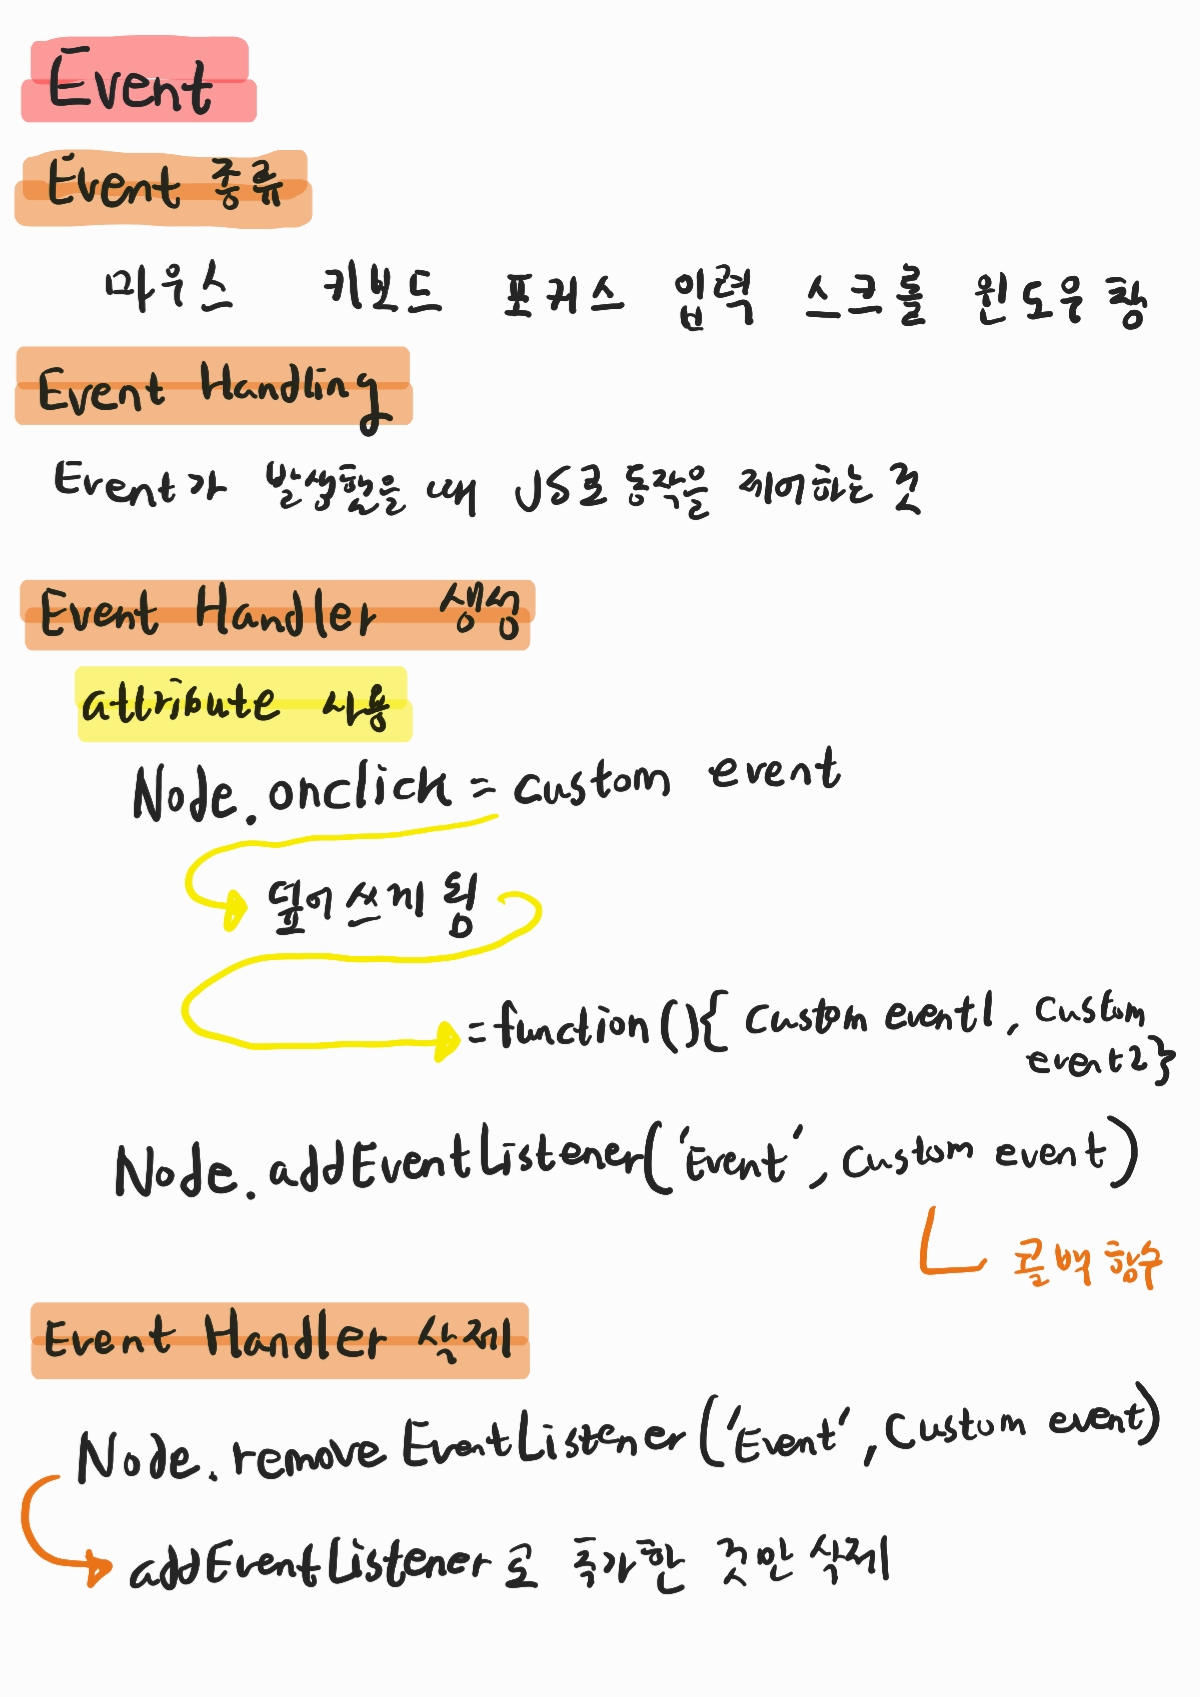 Event
Event 종류
마우스 키보드 포커스 입력 스크롤 윈도우 창
Event Handling
Event가 발생했을 때 JS로 동작을 제어하는 것
Event Handler 생성
attribute 사용
Node.onclick = custom event
덮어쓰게 됨
=function(){ custom event1, custom
event2}
Node.addEventListener('Event', custom event)
콜백 함수
Event Handler 삭제
Node.removeEventListener('Event', custom event)
addEventListener로 추가한 것만 삭제